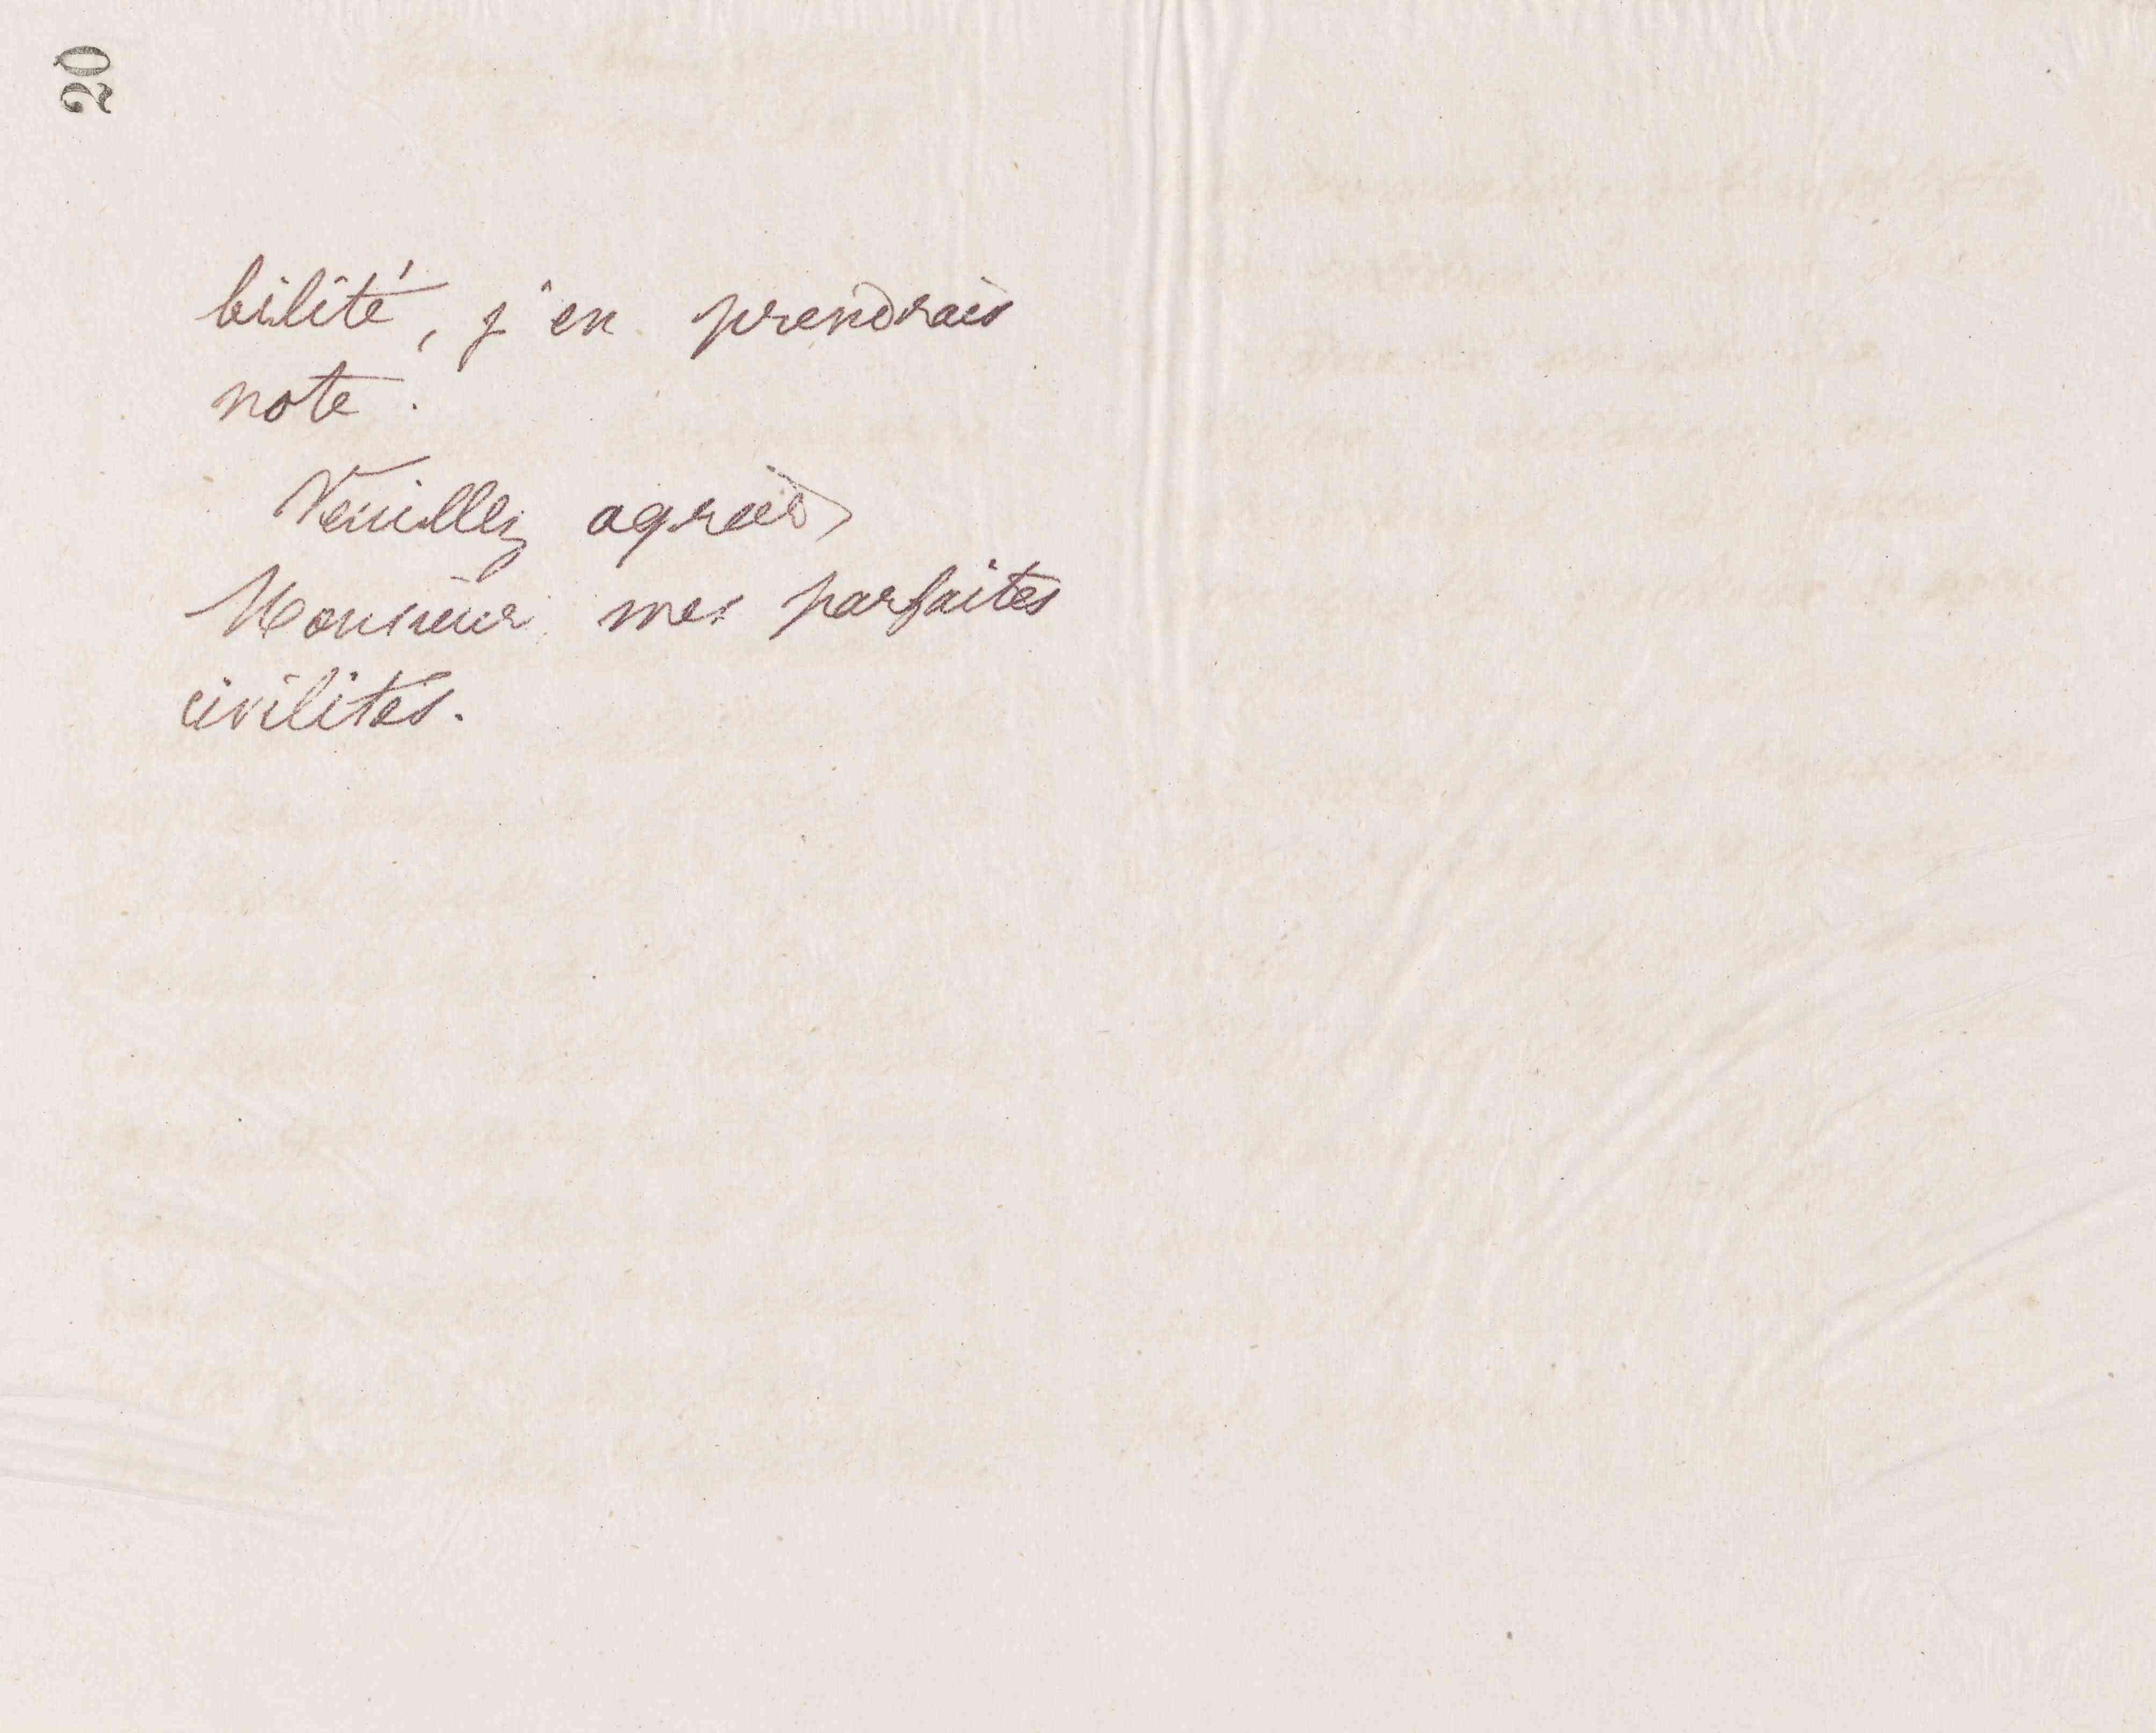 20
bilité, j'en prendrais
note.
Veuillez agréer
Monsieur mes parfaites
civilités.